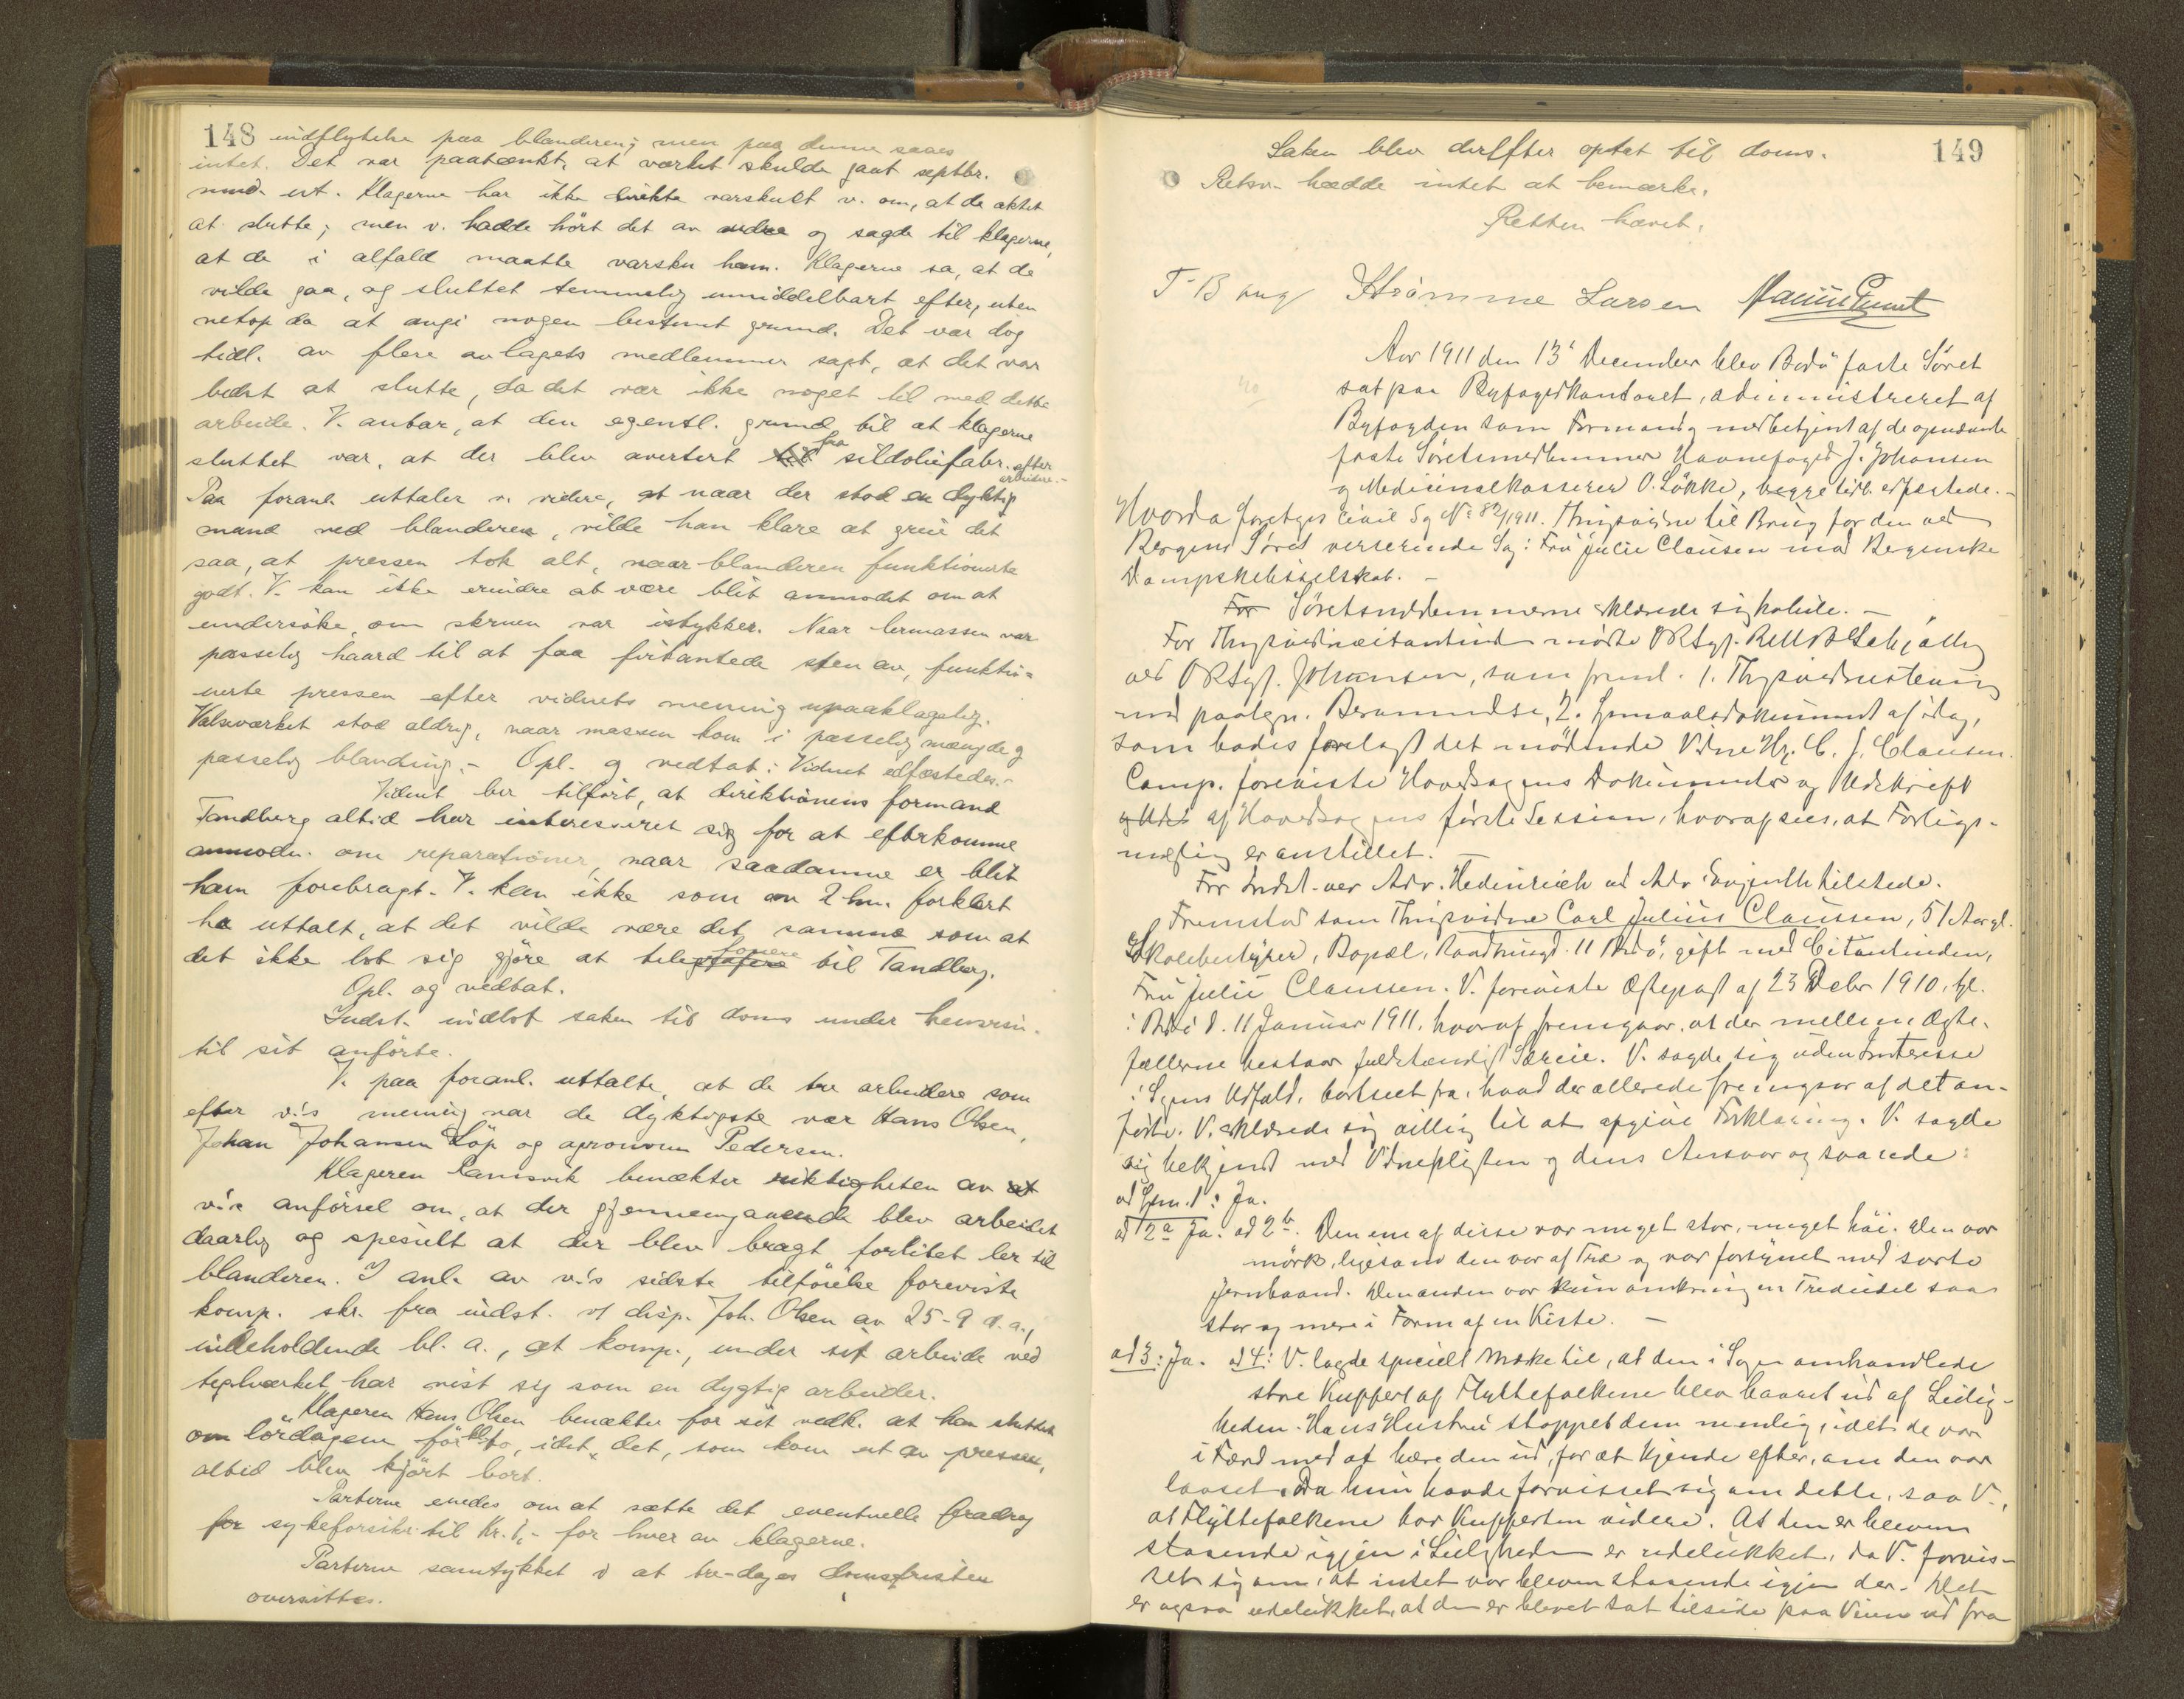 148 indflytelse paa blanderen; men paa denne saaes
intet. Det var paatænkt, at værket skulde gaat septbr.
mnd. ut. Klagerne har ikke direkte varskudt v. om, at de aktet
at slutte; men v. hadde hört det av andre og sagde til klagerne,
at de i alfald maatte varsku ham. Klagerne sa, at de
vilde gaa, og sluttet temmelig umiddelbart efter, uten
netop da at angi nogen bestemt grund. Det var dog
tidl. av flere av lagets medlemmer sagt, at det var
bedst at slutte, da det var ikke noget til med dette
arbeide. V. antar, at den egentl. grund til at klagerne
sluttet var, at der blev avertert fra sildoliefabr. efter
arbeidere.-
Paa foranl. uttaler v. videre, at naar der stod en dyktig
mand ved blanderen, vilde han klare at greie det
saa, at pressen tok alt, naar blanderen funktionerte
godt. V. kan ikke erindre at være blit anmodet om at
undersöke, om skruen var istykker. Naar lermassen var
passelig haard til at faa firkantede sten av, funktio=
nerte pressen efter vidnets mening upaaklagelig.
Valseværket stod aldrig, naar massen kom i passelig mængde og
passelig blanding.- Opl. og vedtat: Vidnet edfæstedes.-
Vidnet ber tilfört, at direktionens formand
Tandberg altid har interesseret sig for at efterkomme
anmodn. om reparationer, naar saadanne er blit
ham forebragt. V. kan ikke som av 2 hm. forklart
ha uttalt, at det vilde være det samme som at
det ikke lot sig gjöre at telefonere til Tandberg.
Opl. og vedtat.
Indst. indlot saken til doms under henvisn.
til sit anförte.
V. paa foranl. uttalte, at de tre arbeidere som
efter v.'s mening var de dyktigste var Hans Olsen,
Johan Johansen Löp og Pedersen.
Klageren Ramsvik benækter riktigheten av
v.'s anförsel om, at der gjennemgaaende blev arbeidet
daarlig og specielt at der blev bragt forlitet ler til
blanderen. I anl. av v.'s sidste tilförelse foreviste
komp. skr. fra indst. v/ disp. Joh. Olsen av 25-9 d.a.,
indeholdende bl. a., at komp., under sit arbeide ved
teglværket har vist sig som en dygtig arbeider.
Klageren Hans Olsen benækter for sit vedk. at han sluttet
om lördagene för kl. to, idet det, som kom ut av pressen,
altid blev kjört bort.
Parterne enedes om at sætte det eventuelle fradrag
for sykeforsikr. til Kr. 1,- for hver av klagerne.
Parterne samtykket i at tre-dages domsfristen
oversittes.
149
Saken blev derefter optat til doms.
Retsv. hadde intet at bemærke.
Retten hævet.
T. Bang Strömme Larsen
Aar 1911 den 13' December blev Bodö faste Söret
sat paa Byfogedkontoret, administreret af
Byfogden som Formand og medbetjent af de opnævnte
faste Söretsmedlemmer Havnefoged J. Johansen
og Medicinalkasserer O. Lökke, begge tidl. edfæstede.-
Hvorda foretoges Civil Sag No 82/1911. Thingsvidne til Brug for den ved
Bergens Söret verserende Sag: Fru Julie Clausen mod Bergenske
Dampskibsselskab. -
Söretsmedlemmerne erklærede sig habile. -
For Thingsvidnecitantinden mödte ORSagf.
ved ORSagf. Johansen, som freml. 1. Thingsvidnestevning
med paategn. Berammelse, 2. Spörsmaalsdokument af idag,
som bades forelagt det mödende Vidne Hr. C. J. Clausen.
Comp. foreviste Hovedsagens Dokumenter og Udskrift
af Hovedsagens förste Session, hvoraf sees, at Forligs-
mægling er anstillet. -
For Indst. var Adv. Hedenreich ved Adv. tilstede.
Fremstod som Thingsvidne Carl Julius Claussen, 51 Aar gl.
Skolebestyrer, Bopæl, 11 Bodö, gift med Citantinden,
Fru Julie Claussen. V. foreviste Ægtepagt af 23 Debr 1910, tgl.
i Bodö d. 11 Januar 1911, hvoraf fremgaar, at der mellem Ægte-
fællerne bestaar fuldstændigt Særeie. V. sagde sig uden Interesse
i Sagens Udfald, bortseet fra, hvad der allerede fremgaar af det an-
förte. V. erklærede sig villig til at afgive Forklaring. V. sagde
sig bekjendt med Vidnepligten og dens Ansvar og svarede:
ad Spm. 1: Ja.
ad 2a Ja. ad 2b. Den ene af disse var meget stor, meget höi. Den var
mörk, ligesom den var af Træ og var forsynet med sorte
Jernbaand. Den anden var kun omkring en Trediedel saa
stor og mere i Form af en Kiste. -
ad 3: Ja. ad 4: V. lagde specielt Mærke til, at den i Sagen omhandlede
store Kuffert af Flyttefolkene blev baaret ud af Leilig-
heden. Hans Hustru stoppet dem nemlig, idet de var
i Færd med at bære den ud, for at kjende efter, om den var
laaset. Da hun havde forvisset sig om dette, saa V.,
at Flyttefolkene bar Kufferten videre. At den er bleven
staaende igjen i Leiligheden er udelukket, da V. forvis-
set sig om, at intet var bleven staaende igjen der. Det
er ogsaa udelukket, at den er blevet sat tilside paa Veien ud fra